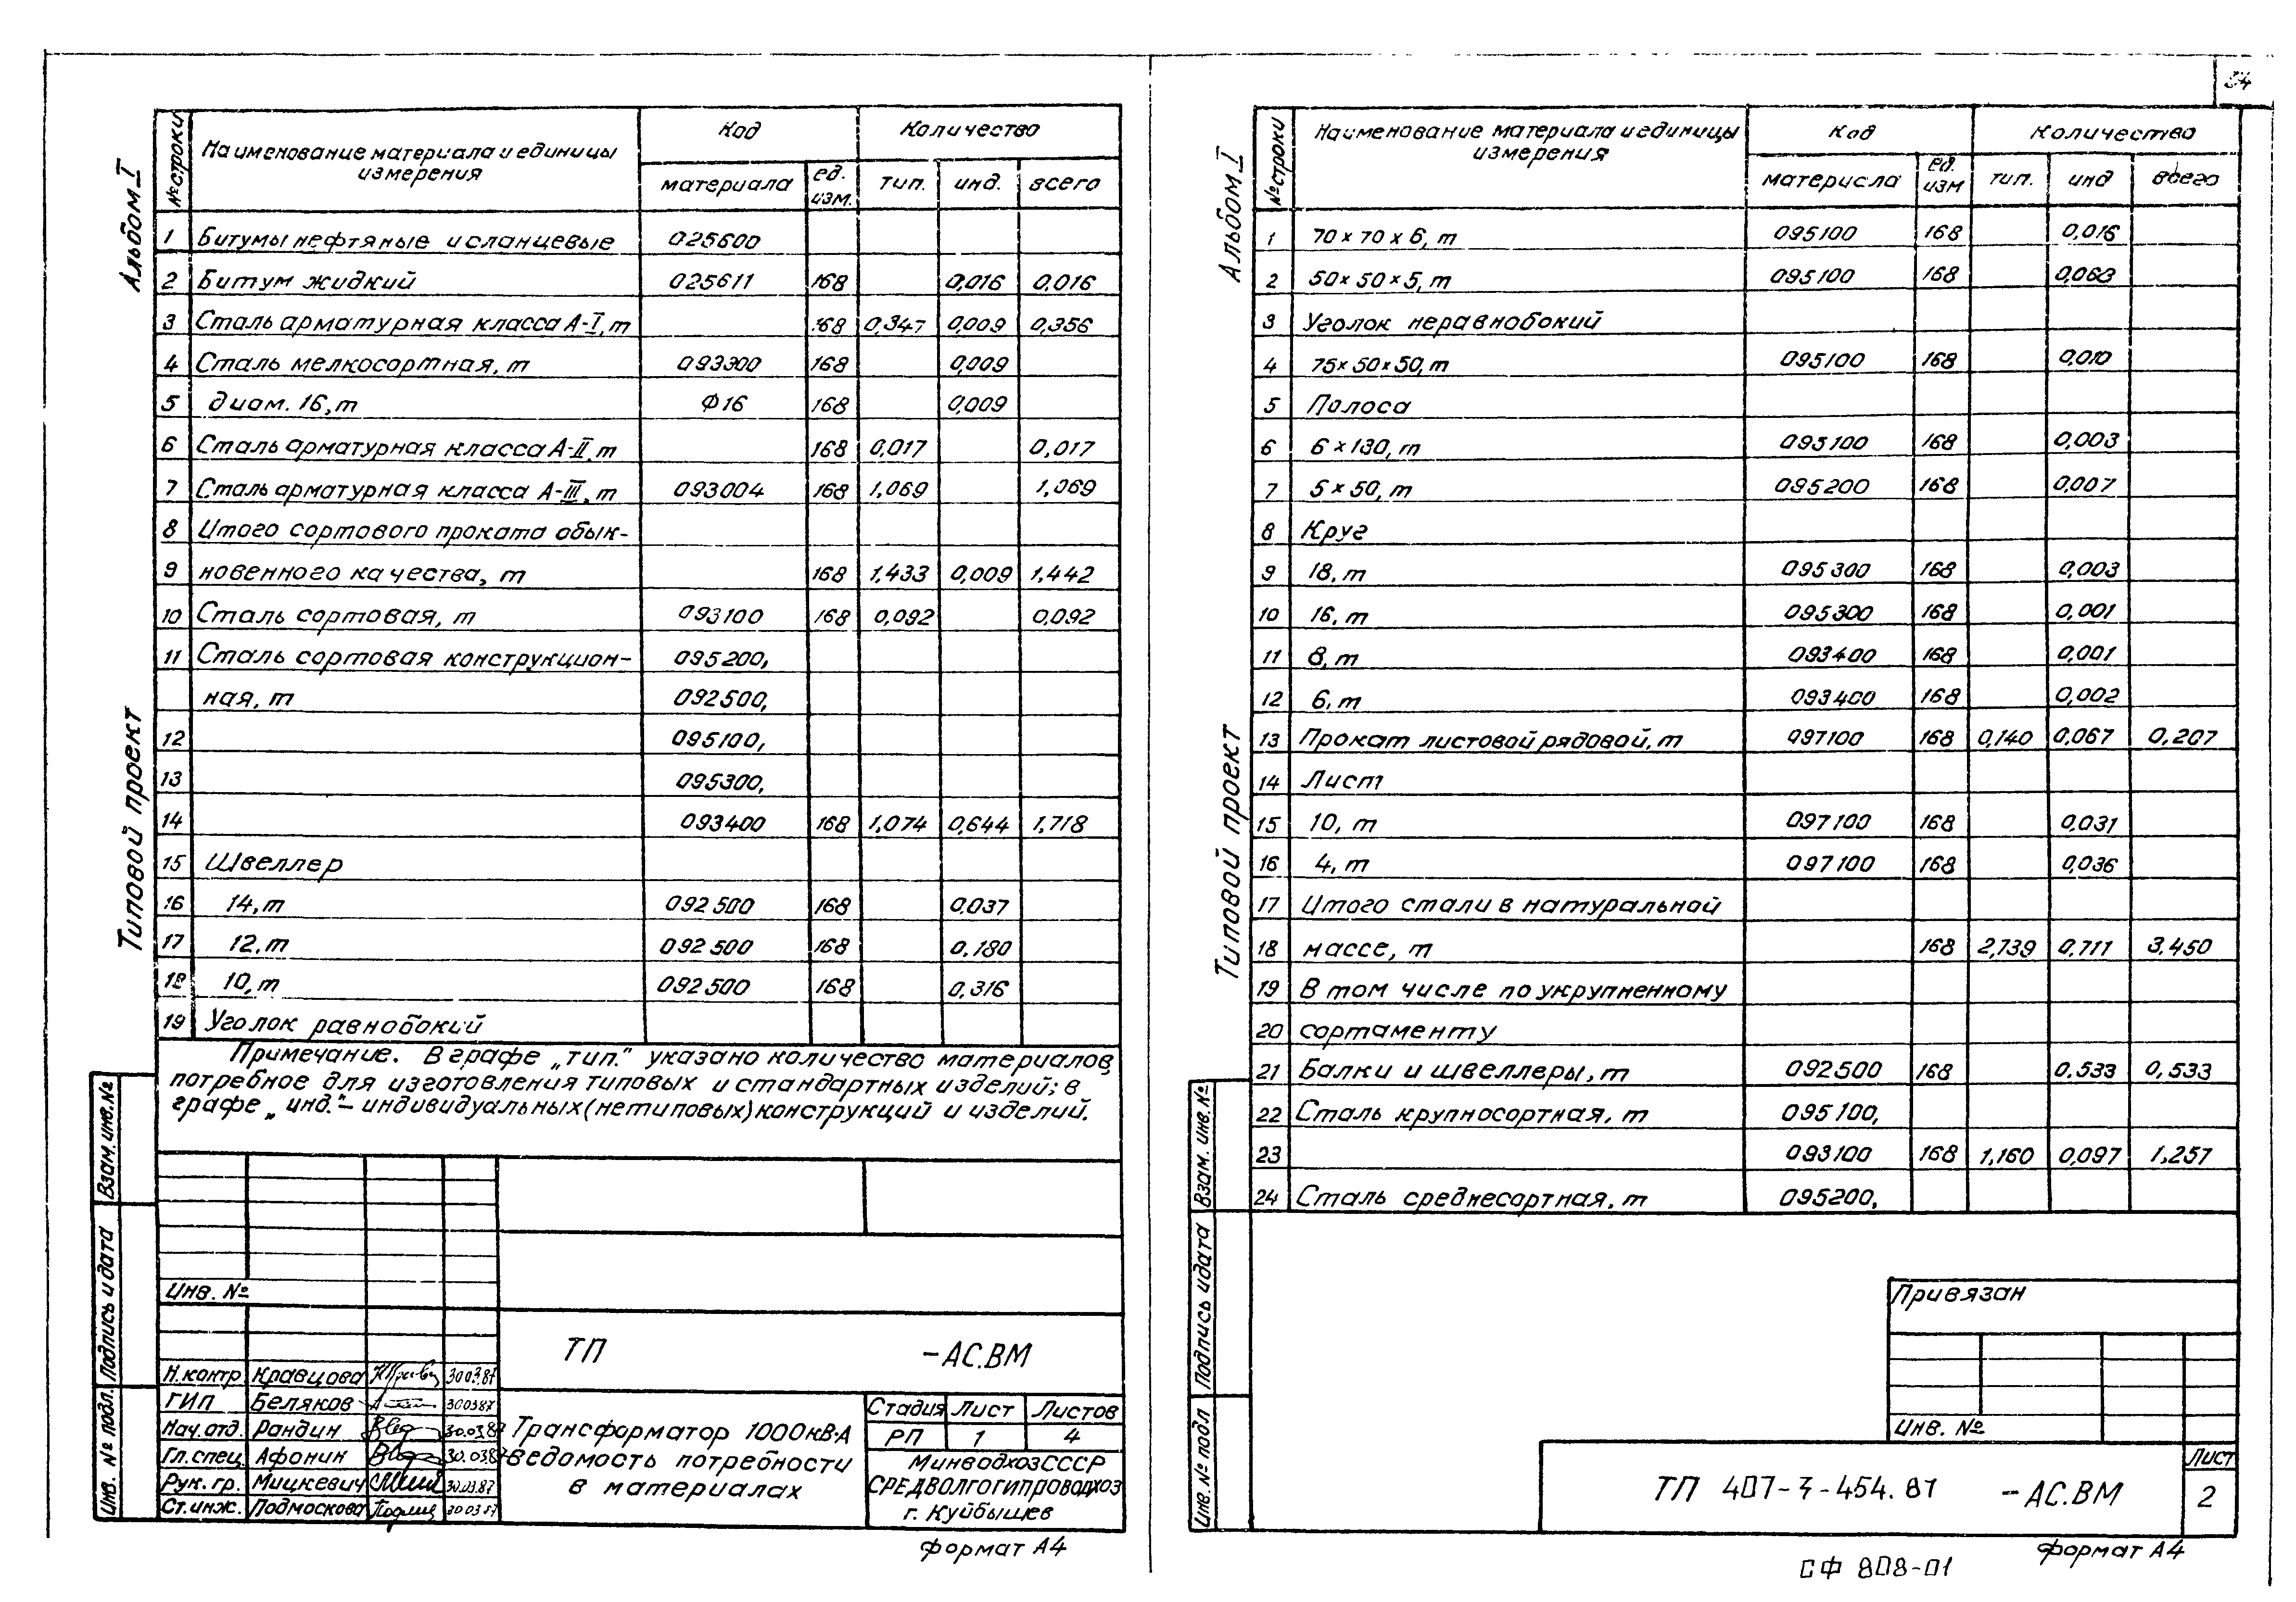 54
Альбом I
Типовой проект
№ строки
Наименование материала и единицы
измерения
Код
Количество
материала
ед.
изм.
тип.
инд.
всего
1 Битумы нефтяные и сланцевые 025600
2 Битум жидкий 025611 168 0,016 0,016
3 Сталь арматурная класса А-I, т 168 0,347 0,009 0,356
4 Сталь мелкосортная, т 093300 168 0,009
5 диам. 16, т Ф16 168 0,009
6 Сталь арматурная класса А-II, т 168 0,017 0,017
7 Сталь арматурная класса А-III, т 093004 168 1,069 1,069
8 Итого сортового проката обык-
9 новенного качества, т 168 1,433 0,009 1,442
10 Сталь сортовая, т 093100 168 0,092 0,092
11 Сталь сортовая конструкцион- 095200,
ная, т 092500,
12 095100,
13 095300,
14 093400 168 1,074 0,644 1,718
15 Швеллер
16 14, т 092500 168 0,037
17 12, т 092500 168 0,180
18 10, т 092500 168 0,316
19 Уголок равнобокий
Примечание. В графе „тип." указано количество материалов,
потребное для изготовления типовых и стандартных изделий; в
графе „инд."- индивидуальных (нетиповых) конструкций и изделий.
Взам. инв. №
Подпись и дата
Инв. № подл.
Инв. №
ТП -АС.ВМ
Н.контр Кравцова 30.03.87
ГИП Беляков 30.03.87
Нач.отд. Рандин 30.03.87
Гл.спец Афонин 30.03.87
Рук. гр. Мицкевич 30.03.87
Ст.инж. Подмоскова 30.03.87
Трансформатор 1000кВ·А
Ведомость потребности
в материалах
Стадия Лист Листов
РП 1 4
Минводхоз СССР
СРЕДВОЛГОГИПРОВОДХОЗ
г. Куйбышев
формат А4
Альбом I
Типовой проект
№ строки
Наименование материала и единицы
измерения
Код
Количество
материала
ед.
изм
тип.
инд
всего
1 70 х 70 х 6, т 095100 168 0,016
2 50 х 50 х 5, т 095100 168 0,068
3 Уголок неравнобокий
4 75 х 50 х 50, т 095100 168 0,010
5 Полоса
6 6 х 130, т 095100 168 0,003
7 5 х 50, т 095200 168 0,007
8 Круг
9 18, т 095300 168 0,003
10 16, т 095300 168 0,001
11 8, т 093400 168 0,001
12 6, т 093400 168 0,002
13 Прокат листовой рядовой, т 097100 168 0,140 0,067 0,207
14 Лист
15 10, т 097100 168 0,031
16 4, т 097100 168 0,036
17 Итого стали в натуральной
18 массе, т 168 2,739 0,711 3,450
19 В том числе по укрупненному
20 сортаменту
21 Балки и швеллеры, т 092500 168 0.533 0,533
22 Сталь крупносортная, т 095100,
23 093100 168 1,160 0,097 1,257
24 Сталь среднесортная, т 095200,
Взам. инв. №
Подпись и дата
Инв. № подл
Привязан
Инв. №
ТП 407-3-454.87 -АС.ВМ
Лист
2
формат А4
СФ 808-01